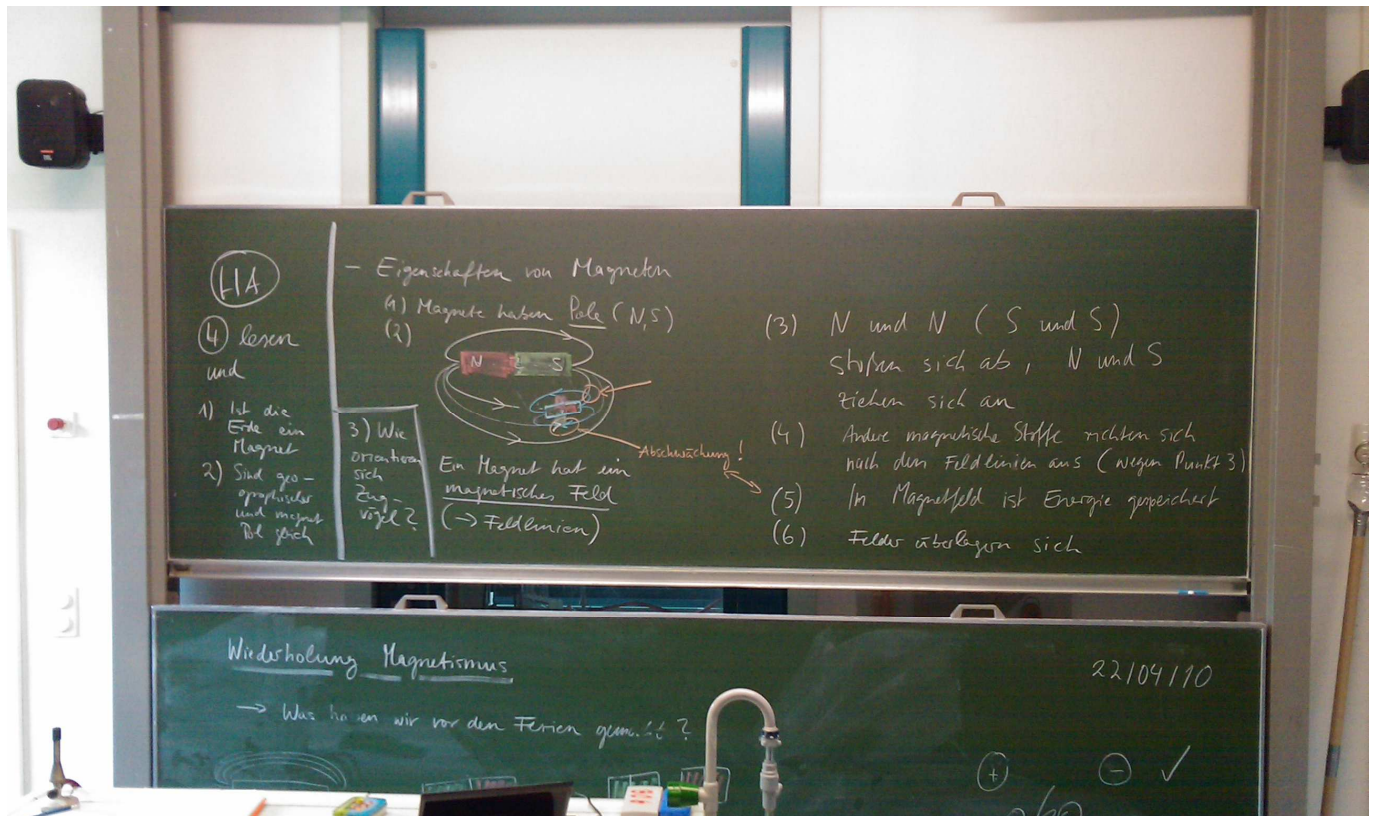 HA
4 lesen
und
1) Ist die
Erde ein
Magnet
2) Sind geo-
graphischer
und magnet
Pol gleich
3) Wie
orientieren
sich
Zug-
vögel?
- Eigenschaften von Magneten
(1) Magnete haben Pole (N,S)
(2)
N S
Abschwächung!
Ein Magnet hat ein
magnetisches Feld
(→ Feldlinien)
(3) N und N (S und S)
stoßen sich ab, N und S
ziehen sich an
(4) Andere magnetische Stoffe richten sich
nach den Feldlinien aus (wegen Punkt 3)
(5) In Magnetfeld ist Energie gespeichert
(6) Felder überlagern sich
Wiederholung Magnetismus
22/04/10
→ Was haben wir vor den Ferien gemacht?
+ - ✓